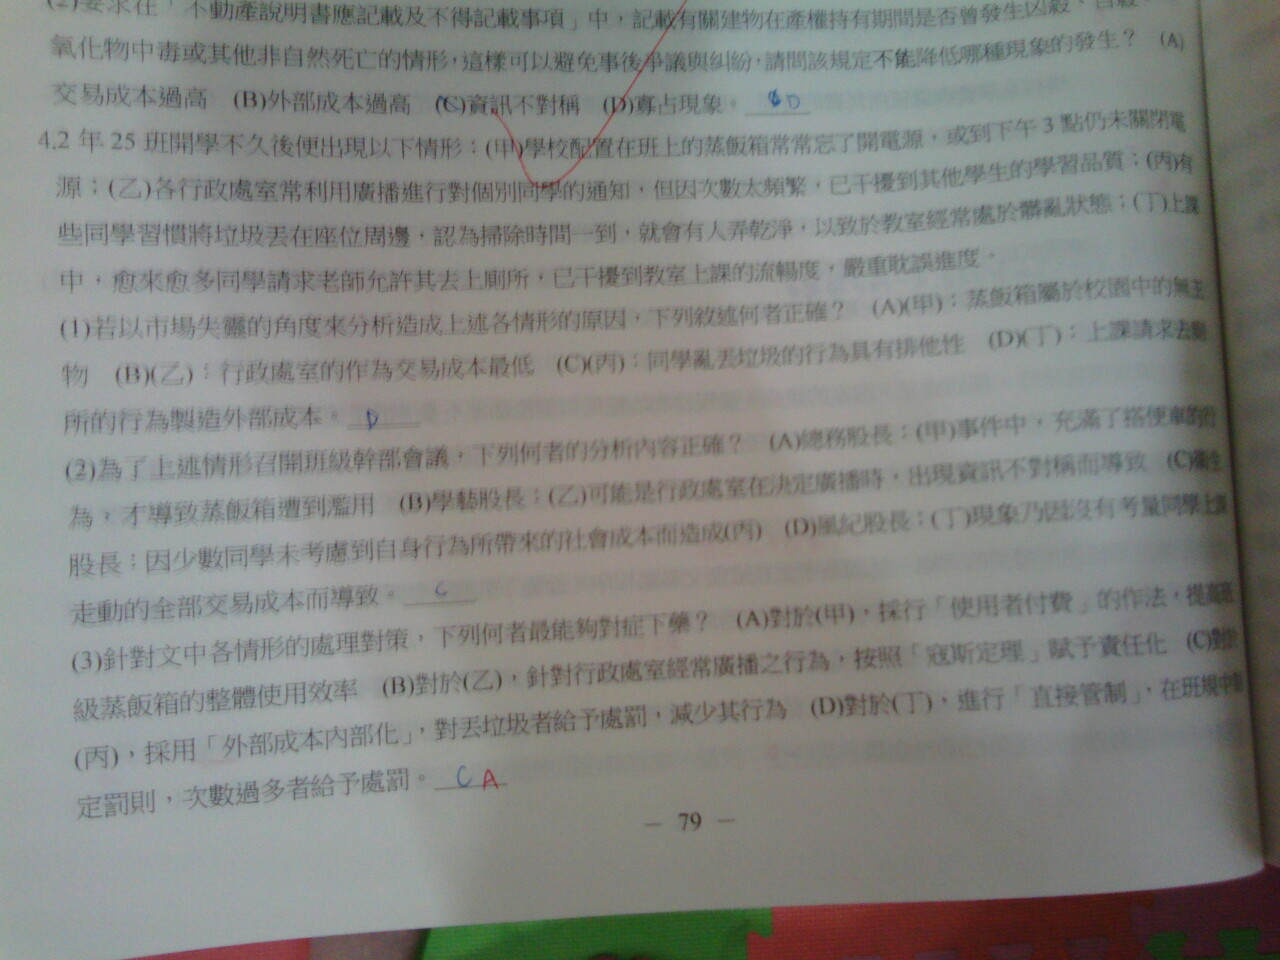 (2)要求在「不動產說明書應記載及不得記載事項」中，記載有關建物在產權持有期間是否曾發生凶殺、自殺、
氧化物中毒或其他非自然死亡的情形，這樣可以避免事後爭議與糾紛，請問該規定不能降低哪種現象的發生？ (A)
交易成本過高 (B)外部成本過高 (C)資訊不對稱 (D)寡占現象。 D
4.2 年 25 班開學不久後便出現以下情形：(甲)學校配置在班上的蒸飯箱常常忘了開電源，或到下午 3 點仍未關閉電
源；(乙)各行政處室常利用廣播進行對個別同學的通知，但因次數太頻繁，已干擾到其他學生的學習品質；(丙)有
些同學習慣將垃圾丟在座位周邊，認為掃除時間一到，就會有人弄乾淨，以致於教室經常處於髒亂狀態；(丁)上課
中，愈來愈多同學請求老師允許其去上廁所，已干擾到教室上課的流暢度，嚴重耽誤進度。
(1)若以市場失靈的角度來分析造成上述各情形的原因，下列敘述何者正確？ (A)(甲)：蒸飯箱屬於校園中的無主
物 (B)(乙)：行政處室的作為交易成本最低 (C)(丙)：同學亂丟垃圾的行為具有排他性 (D)(丁)：上課請求去廁
所的行為製造外部成本。 D
(2)為了上述情形召開班級幹部會議，下列何者的分析內容正確？ (A)總務股長：(甲)事件中，充滿了搭便車的行
為，才導致蒸飯箱遭到濫用 (B)學藝股長：(乙)可能是行政處室在決定廣播時，出現資訊不對稱而導致 (C)衛生
股長：因少數同學未考慮到自身行為所帶來的社會成本而造成(丙) (D)風紀股長：(丁)現象乃因沒有考量同學上課
走動的全部交易成本而導致。 C
(3)針對文中各情形的處理對策，下列何者最能夠對症下藥？ (A)對於(甲)，採行「使用者付費」的作法，提高班
級蒸飯箱的整體使用效率 (B)對於(乙)，針對行政處室經常廣播之行為，按照「寇斯定理」賦予責任化 (C)對於
(丙)，採用「外部成本內部化」，對丟垃圾者給予處罰，減少其行為 (D)對於(丁)，進行「直接管制」，在班規中
定罰則，次數過多者給予處罰。 C A
— 79 —